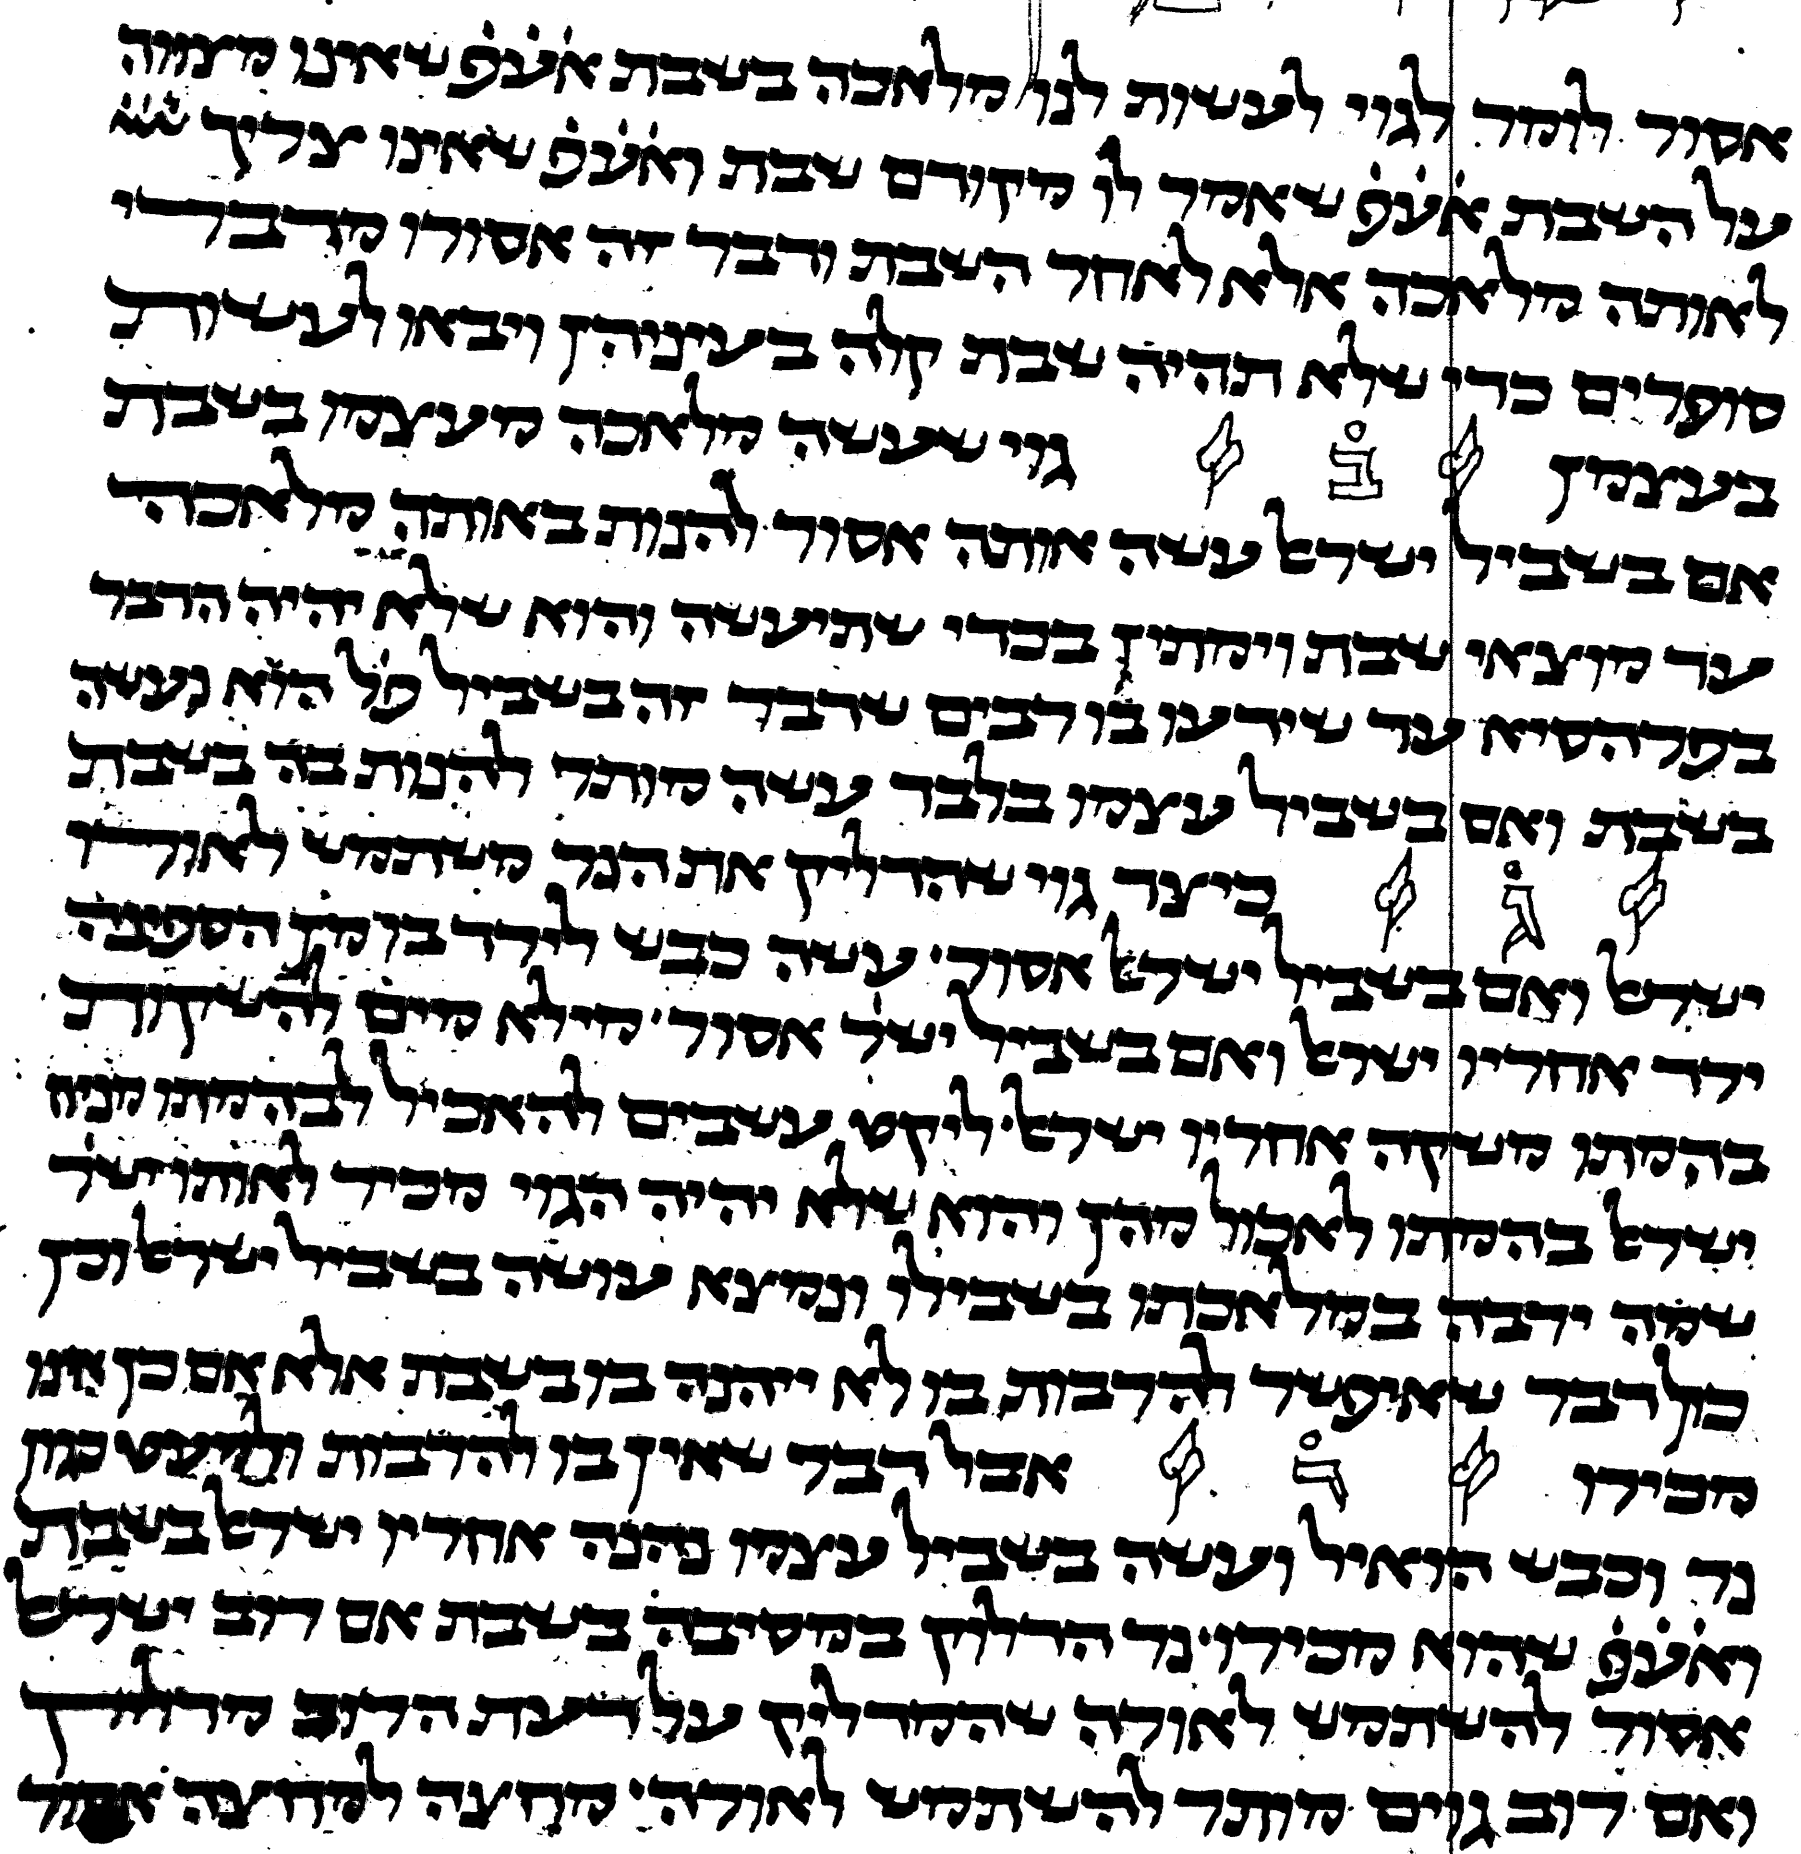 אסור לומר לגוי לעשות לנו מלאכה בשבת אעפ שאינו מצווה
על השבת אעפ שאמר לו מקודם שבת ואעפ שאינו צריך
לאותה מלאכה אלא לאחר השבת ודבר זה אסורו מדברי
סופרים כדי שלא תהיה שבת קלה בעיניהן ויבאו לעשות
בעצמן ב גוי שעשה מלאכה מעצמו בשבת
אם בשביל ישראל עשה אותה אסור להנות באותה מלאכה
עד מוצאי שבת וימתין בכדי שתיעשה והוא שלא יהיה הדבר
בפרהסיא עד שידעו בו רבים שדבר זה בשביל פל הוא נעשה
בשבת ואם בשביל עצמו בלבד עשה מותר להנות בה בשבת
ג כיצד גוי שהדליק את הנר משתמש לאורו
ישראל ואם בשביל ישראל אסור עשה כבש לירד בו מן הספינה
ירד אחריו ישראל ואם בשביל ישר אסור מילא מים להשקות
בהמתו משקה אחריו ישראל ליקט עשבים להאכיל לבהמתו מניח
ישראל בהמתו לאכול מהן והוא שלא יהיה הגוי מכיר לאותו ישר
שמה ירבה במלאכתו בשבילו ונמצא עושה בשביל ישראל וכן
כול דבר שאיפשר להרבות בו לא ייהנה בו בשבת אלא אם כן אינו
מכירו ד אבל דבר שאין בו להרבות ולמעט כגון
נר וכבש הואיל ועשה בשביל עצמו נהנה אחריו ישראל בשבת
ואעפ שהוא מכירו נר הדלוק במסיבה בשבת אם רוב ישראל
אסור להשתמש לאורה שהמדליק על דעת הרוב מדליק
ואם רוב גוים מותר להשתמש לאורה מחצה למחצה אסור